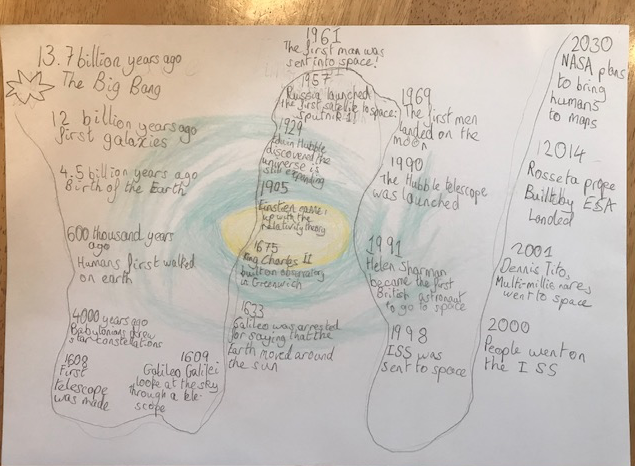 13.7 billion years ago
The Big Bang
12 billion years ago
first galaxies
4.5 billion years ago
Birth of the Earth
600 thousand years
ago
Humans first walked
on earth
4000 years ago
Babylonians drew
star constellations
1608
First
telescope
was made
1609
Galileo Galilei
look at the sky
through a tele-
scope
1633
Galileo was arrested
for saying that the
Earth moved around
the sun
1675
King Charles II
built an observatory
in Greenwich
1905
Einstien
up with the
relativity theory
1929
Edwin Hubble
discovered the
universe is
still expanding
1957
Russia launched
the first satellite to space:
Sputnik 1!
1961
The first man was
sent into space!
1969
The first men
landed on the
moon
1990
The Hubble telescope
was launched
1991
Helen Sharman
became the first
British astronaut
to go to space
1998
ISS was
sent to space
2000
People went on
the ISS
2001
Dennis Tito,
Multi-millionare,
went to space
2014
Rosseta prope
Built by ESA
Landed
2030
NASA plans
to bring
humans
to maps